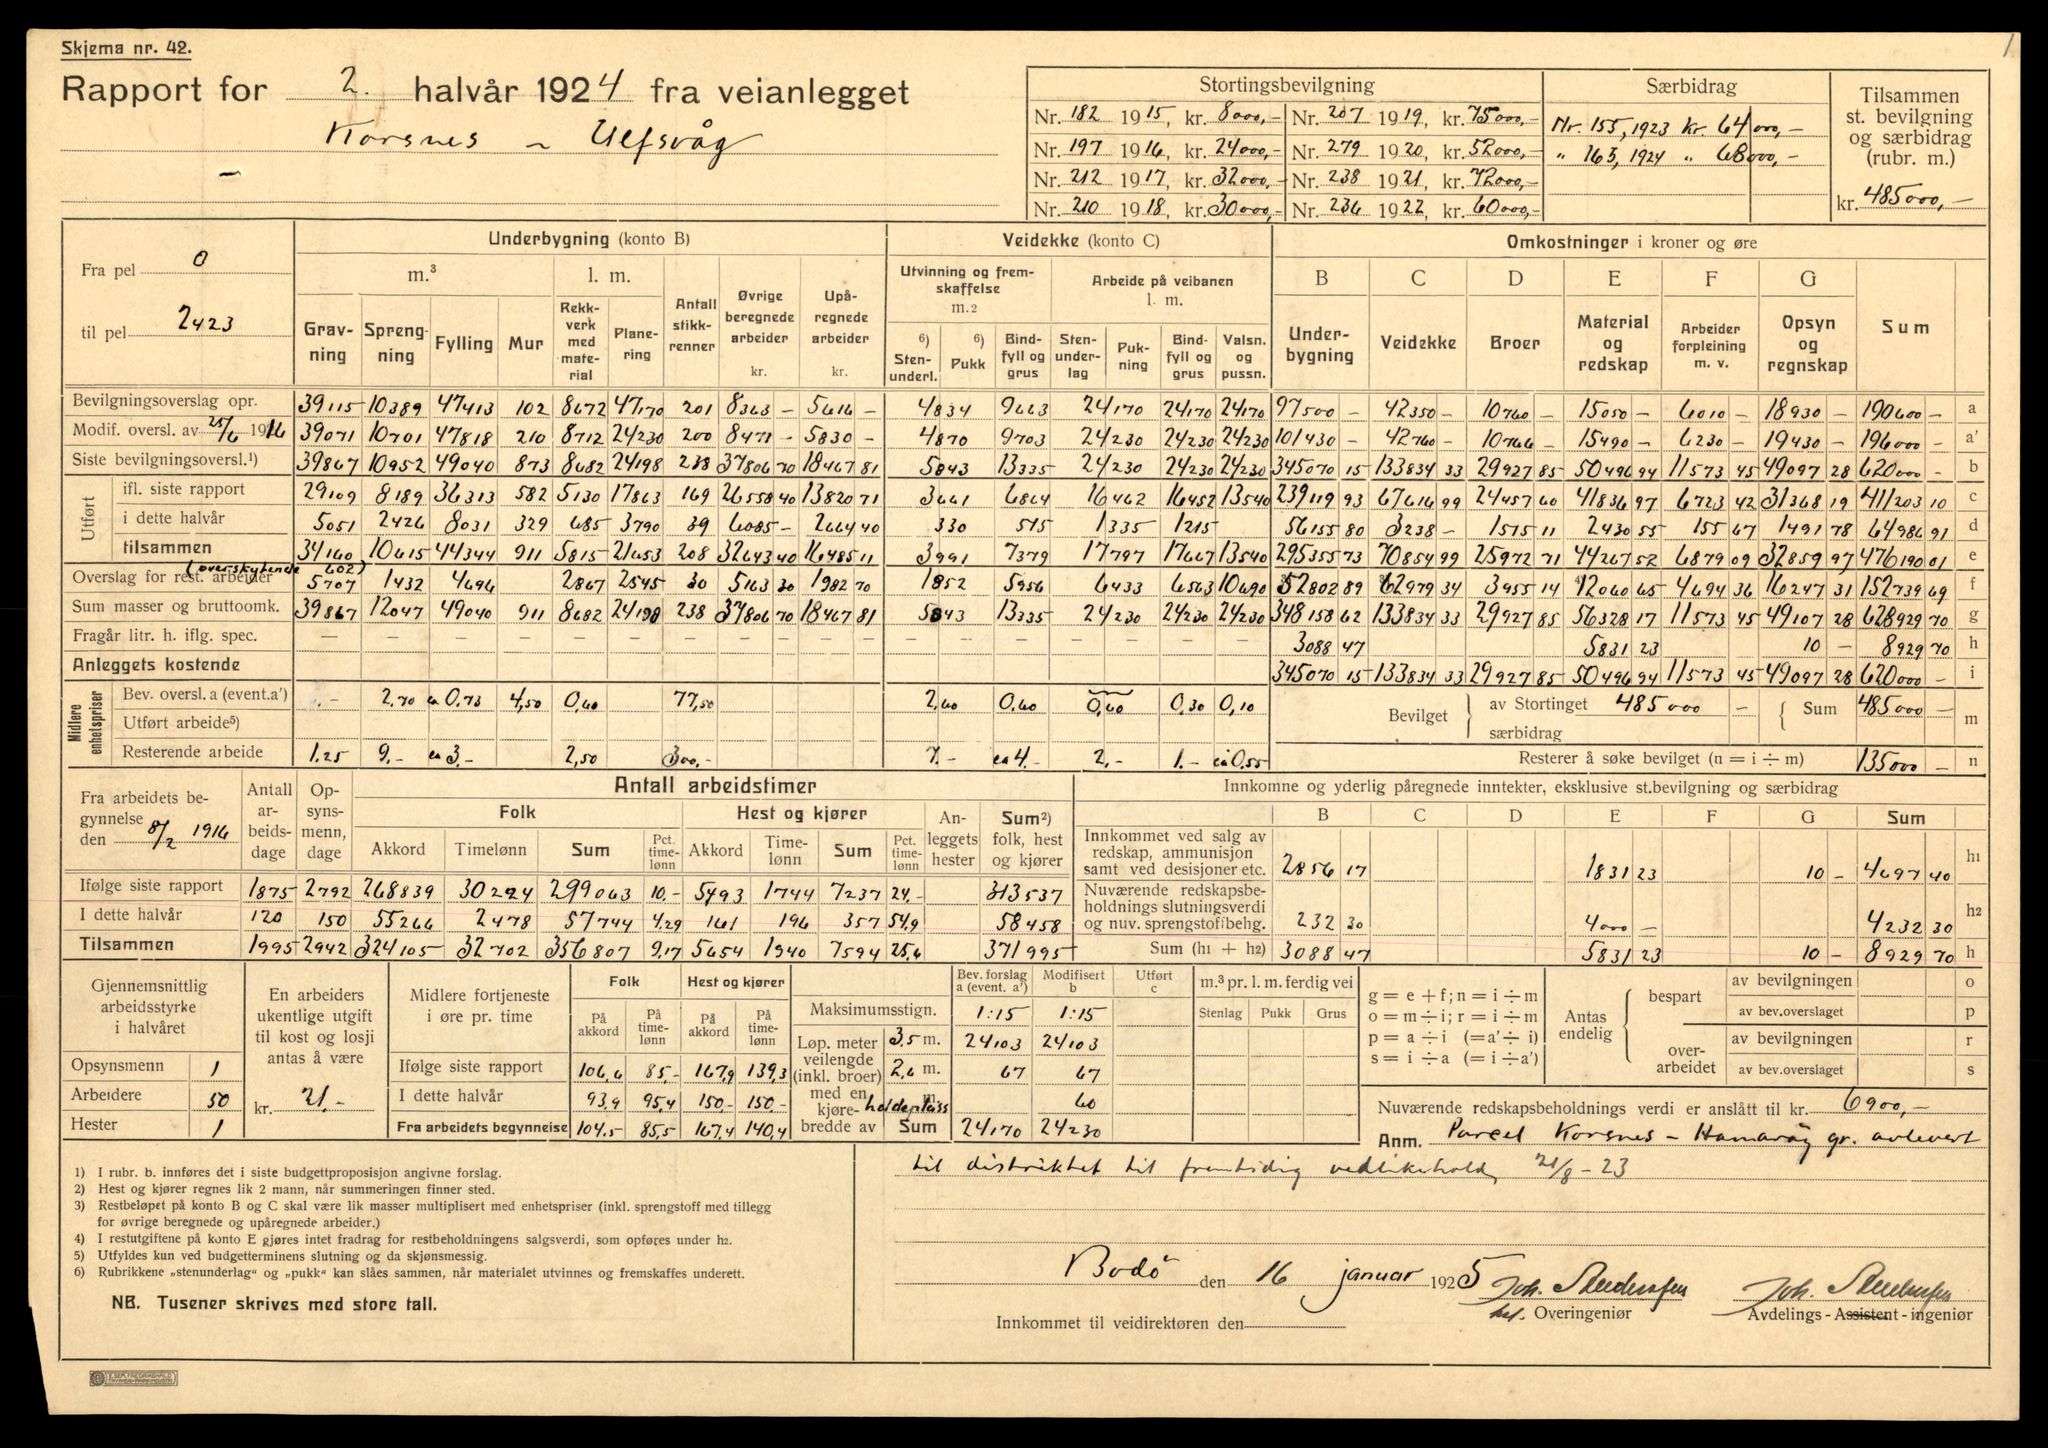 Skjema nr. 42.
1
Rapport for 2. halvår 1924 fra veianlegget
Korsnes – Ulfsvåg
Stortingsbevilgning
Særbidrag
Tilsammen st. bevilgning og særbidrag (rubr. m.)
kr. 485000,-
Nr. 182 1915, kr. 8000,- Nr. 207 1919, kr. 75000,-
Nr. 197 1916, kr. 24000,- Nr. 279 1920, kr. 52000,-
Nr. 212 1917, kr. 32000,- Nr. 238 1921, kr. 72000,-
Nr. 210 1918, kr. 30000,- Nr. 236 1922, kr. 60000,-
Nr. 155, 1923 Kr. 64000,-
" 165, 1924 " 68000,-
Fra pel 0
til pel 2423
Underbygning (konto B)
m.3 l. m.
Gravning Sprengning Fylling Mur Rekkverk med material Planering Antall stikkrenner Øvrige beregnede arbeider kr. Upåregnede arbeider kr.
Veidekke (konto C)
Utvinning og fremskaffelse m.2 Arbeide på veibanen l. m.
6) Stenunderl. 6) Pukk Bindfyll og grus Stenunderlag Pukning Bindfyll og grus Valsn. og pussn.
Omkostninger i kroner og øre
B C D E F G
Underbygning Veidekke Broer Material og redskap Arbeider forpleining m. v. Opsyn og regnskap Sum
Bevilgningsoverslag opr. 39115 10389 47413 102 8672 47170 201 8363 – 5616 – 4834 9663 24170 24170 24170 97500 – 42350 – 10760 – 15050 – 6010 – 18930 – 190600 – a
Modif. oversl. av 25/6 1916 39071 10701 47818 210 8712 24230 200 8471 – 5830 – 4870 9703 24230 24230 24230 101430 – 42760 – 10766 – 15490 – 6230 – 19430 – 196000 – a'
Siste bevilgningsoversl.1) 39867 10952 49040 873 8682 24198 238 37806 70 18467 81 5843 13335 24230 24230 24230 345070 15 133834 33 29927 85 50496 94 11573 45 49097 28 620000 – b
Utført
ifl. siste rapport 29109 8189 36313 582 5130 17863 169 26558 40 13820 71 3661 6864 16462 16452 13540 239119 93 67616 99 24457 60 41836 97 6723 42 31368 19 411203 10 c
i dette halvår 5051 2426 8031 329 685 3790 39 6085 – 2664 40 330 515 1335 1215 56155 80 3238 – 1515 11 2430 55 155 67 1491 78 64986 91 d
tilsammen 34160 10615 44344 911 5815 21653 208 32643 40 16485 11 3991 7379 17797 17667 13540 295355 73 70854 99 25972 71 44267 52 6879 09 32859 97 476190 01 e
(overskytende 602)
Overslag for rest. arbeider 5707 1432 4696 2867 2545 30 5163 30 1982 70 1852 5956 6433 6563 10690 52802 89 62979 34 3955 14 12060 65 4694 36 16247 31 152739 69 f
Sum masser og bruttoomk. 39867 12047 49040 911 8682 24198 238 37806 70 18467 81 5843 13335 24230 24230 24230 348158 62 133834 33 29927 85 56328 17 11573 45 49107 28 628929 70 g
Fragår litr. h. iflg. spec. – – – – – – – – – – – – – – – – 3088 47 5831 23 10 – 8929 70 h
Anleggets kostende 345070 15 133834 33 29927 85 50496 94 11573 45 49097 28 620000 – i
Midlere enhetspriser
Bev. oversl. a (event. a') 2,70 ca 0,73 4,50 0,60 77,50 2,60 0,60 0,60 0,30 0,10
Utført arbeide5)
Resterende arbeide 1.25 9.- ca 3.- 2,50 300,- 7.- ca 4.- 2,- 1.- ca 0.55
Bevilget av Stortinget 485000 – særbidrag Sum 485000 – m
Resterer å søke bevilget (n = i ÷ m) 135000 – n
Fra arbeidets begynnelse den 8/2 1916
Antall arbeidsdage
Opsynsmenn, dage
Antall arbeidstimer
Folk
Hest og kjører
Anleggets hester
Sum2) folk, hest og kjører
Akkord Timelønn Sum Pct. timelønn Akkord Timelønn Sum Pct. timelønn
Ifølge siste rapport 1875 2792 268839 30224 299063 10.- 5493 1744 7237 24.- 313537
I dette halvår 120 150 55266 2478 57744 4.29 161 196 357 54,9 58458
Tilsammen 1995 2942 324105 32702 356807 9,17 5654 1940 7594 25,6 371995
Innkomne og yderlig påregnede inntekter, eksklusive st.bevilgning og særbidrag
B C D E F G Sum
Innkommet ved salg av redskap, ammunisjon samt ved desisjoner etc. 2856 17 1831 23 10 – 4697 40 h1
Nuværende redskapsbeholdnings slutningsverdi og nuv. sprengstofbehg. 232 30 4000 – 4232 30 h2
Sum (h1 + h2) 3088 47 5831 23 10 – 8929 70 h
Gjennemsnittlig arbeidsstyrke i halvåret
Opsynsmenn 1
Arbeidere 50
Hester 1
En arbeiders ukentlige utgift til kost og losji antas å være
kr. 21.-
Midlere fortjeneste i øre pr. time
Folk Hest og kjører
På akkord På timelønn På akkord På timelønn
Ifølge siste rapport 106,6 85,- 167,9 139,3
I dette halvår 93,9 95,4 150.- 150.-
Fra arbeidets begynnelse 104,5 85,5 167,4 140,4
Bev. forslag a (event. a') Modifisert b Utført c
Maksimumsstign. 1:15 1:15
Løp. meter veilengde (inkl. broer) med en kjørebredde av
3,5 m. 24103 24103
2,6 m. 67 67
holdeplass m. 60
Sum 24170 24230
m.3 pr. l. m. ferdig vei
Stenlag Pukk Grus
g = e + f; n = i ÷ m
o = m ÷ i; r = i ÷ m
p = a ÷ i (= a' ÷ i)
s = i ÷ a (= i ÷ a')
Antas endelig
bespart av bevilgningen o
av bev.overslaget p
overarbeidet av bevilgningen r
av bev.overslaget s
Nuværende redskapsbeholdnings verdi er anslått til kr. 6900,-
Anm. Parcel Korsnes – Hamarøy gr. avlevert
til distriktet til fremtidig vedlikehold, 21/8 – 23
1) I rubr. b. innføres det i siste budgettproposisjon angivne forslag.
2) Hest og kjører regnes lik 2 mann, når summeringen finner sted.
3) Restbeløpet på konto B og C skal være lik masser multiplisert med enhetspriser (inkl. sprengstoff med tillegg
for øvrige beregnede og upåregnede arbeider.)
4) I restutgiftene på konto E gjøres intet fradrag for restbeholdningens salgsverdi, som opføres under h2.
5) Utfyldes kun ved budgetterminens slutning og da skjønsmessig.
6) Rubrikkene „stenunderlag" og „pukk" kan slåes sammen, når materialet utvinnes og fremskaffes underett.
NB. Tusener skrives med store tall.
Bodø den 16 januar 1925
Overingeniør
Avdelings-Assistent-ingeniør
Innkommet til veidirektøren den